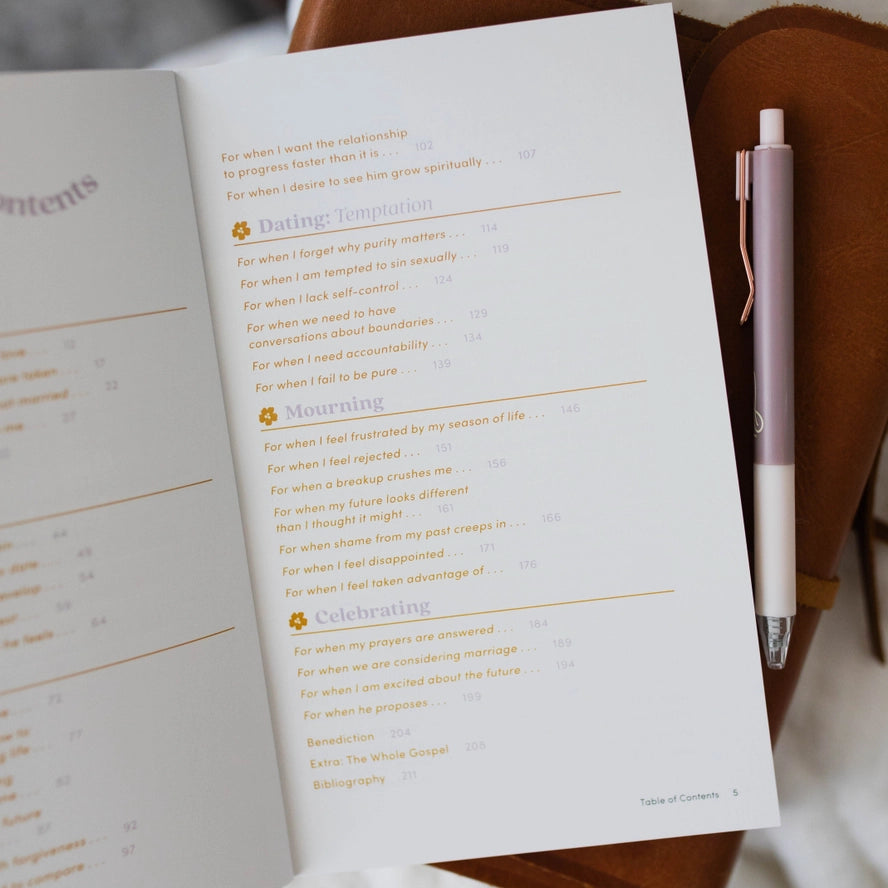 ontents
love . . . 12
17
married . . . 22
me . . . 27
44
date . . . 49
develop . . . 54
59
he feels . . . 64
73
to
life . . . 77
82
future
87
forgiveness . . . 92
to compare . . . 97
For when I want the relationship
to progress faster than it is . . . 102
For when I desire to see him grow spiritually . . . 107
Dating: Temptation
For when I forget why purity matters . . . 114
For when I am tempted to sin sexually . . . 119
For when I lack self-control . . . 124
For when we need to have
conversations about boundaries . . . 129
For when I need accountability . . . 134
For when I fail to be pure . . . 139
Mourning
For when I feel frustrated by my season of life . . . 146
For when I feel rejected . . . 151
For when a breakup crushes me . . . 156
For when my future looks different
than I thought it might . . . 161
For when shame from my past creeps in . . . 166
For when I feel disappointed . . . 171
For when I feel taken advantage of . . . 176
Celebrating
For when my prayers are answered . . . 184
For when we are considering marriage . . . 189
For when I am excited about the future . . . 194
For when he proposes . . . 199
Benediction 204
Extra: The Whole Gospel 208
Bibliography 211
Table of Contents 5